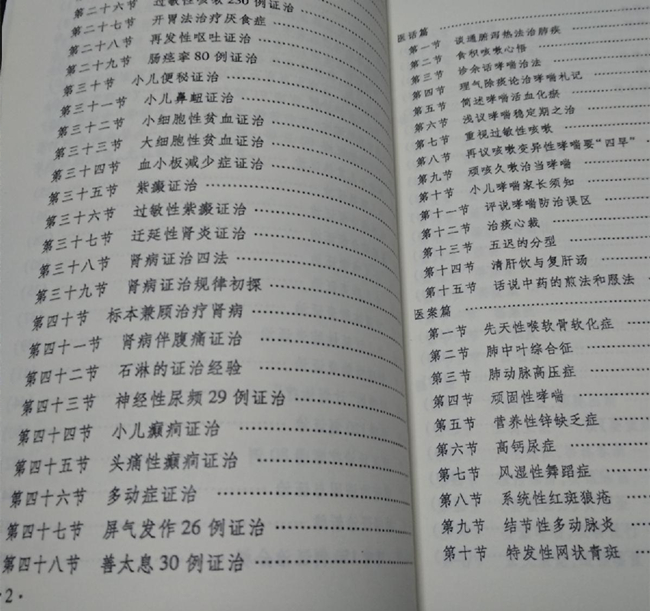 第二十六节 过敏性咳嗽230例证治
第二十七节 开胃法治疗厌食症
第二十八节 再发性呕吐证治
第二十九节 肠痉挛80例证治
第三十节 小儿便秘证治
第三十一节 小儿鼻衄证治
第三十二节 小细胞性贫血证治
第三十三节 大细胞性贫血证治
第三十四节 血小板减少症证治
第三十五节 紫癜证治
第三十六节 过敏性紫癜证治
第三十七节 迁延性肾炎证治
第三十八节 肾病证治四法
第三十九节 肾病证治规律初探
第四十节 标本兼顾治疗肾病
第四十一节 肾病伴腹痛证治
第四十二节 石淋的证治经验
第四十三节 神经性尿频29例证治
第四十四节 小儿癫痫证治
第四十五节 头痛性癫痫证治
第四十六节 多动症证治
第四十七节 屏气发作26例证治
第四十八节 善太息30例证治
·2·
医话篇
第一节 谈通腑泻热法治肺疾
第二节 食积咳嗽心悟
第三节 诊余话哮喘治法
第四节 理气除痰论治哮喘札记
第五节 简述哮喘活血化瘀
第六节 浅议哮喘稳定期之治
第七节 重视过敏性咳嗽
第八节 再议咳嗽变异性哮喘要“四早”
第九节 顽咳久嗽治当哮喘
第十节 小儿哮喘家长须知
第十一节 评说哮喘防治误区
第十二节 治痰心裁
第十三节 五迟的分型
第十四节 清肝饮与复肝汤
第十五节 话说中药的煎法和服法
医案篇
第一节 先天性喉软骨软化症
第二节 肺中叶综合征
第三节 肺动脉高压症
第四节 顽固性哮喘
第五节 营养性锌缺乏症
第六节 高钙尿症
第七节 风湿性舞蹈症
第八节 系统性红斑狼疮
第九节 结节性多动脉炎
第十节 特发性网状青斑